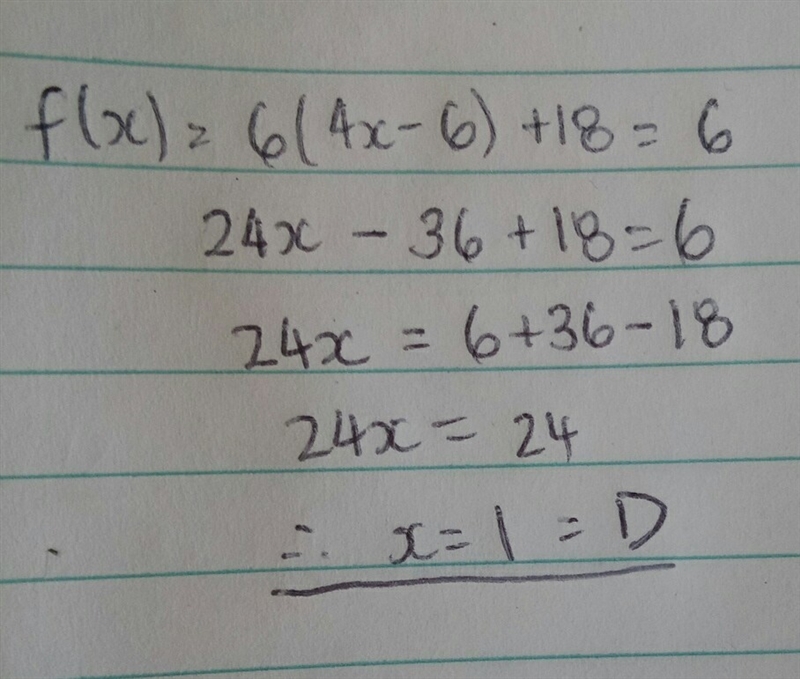 f(x) = 6(4x - 6) + 18 = 6
24x - 36 + 18 = 6
24x = 6 + 36 - 18
24x = 24
∴ x = 1 = D